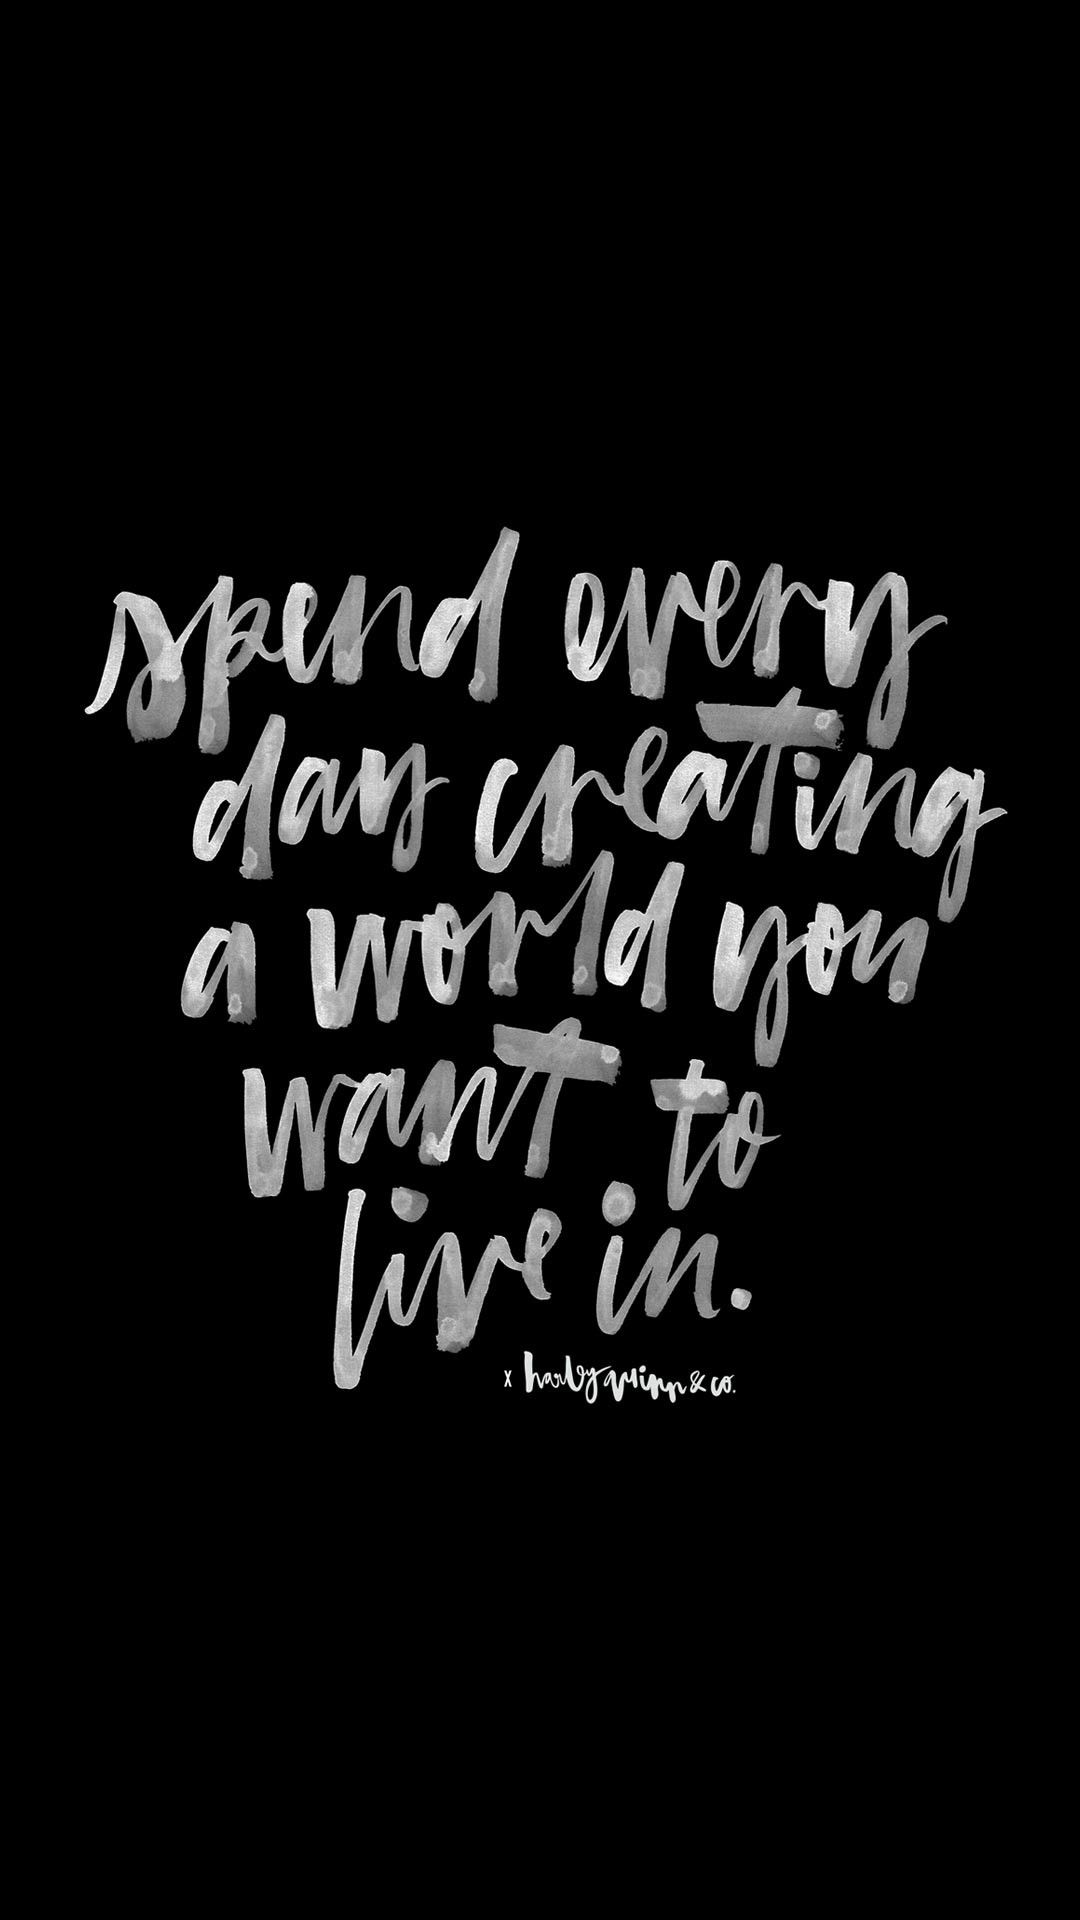 spend every
day creating
a world you
want to
live in.
x harley quinn & co.